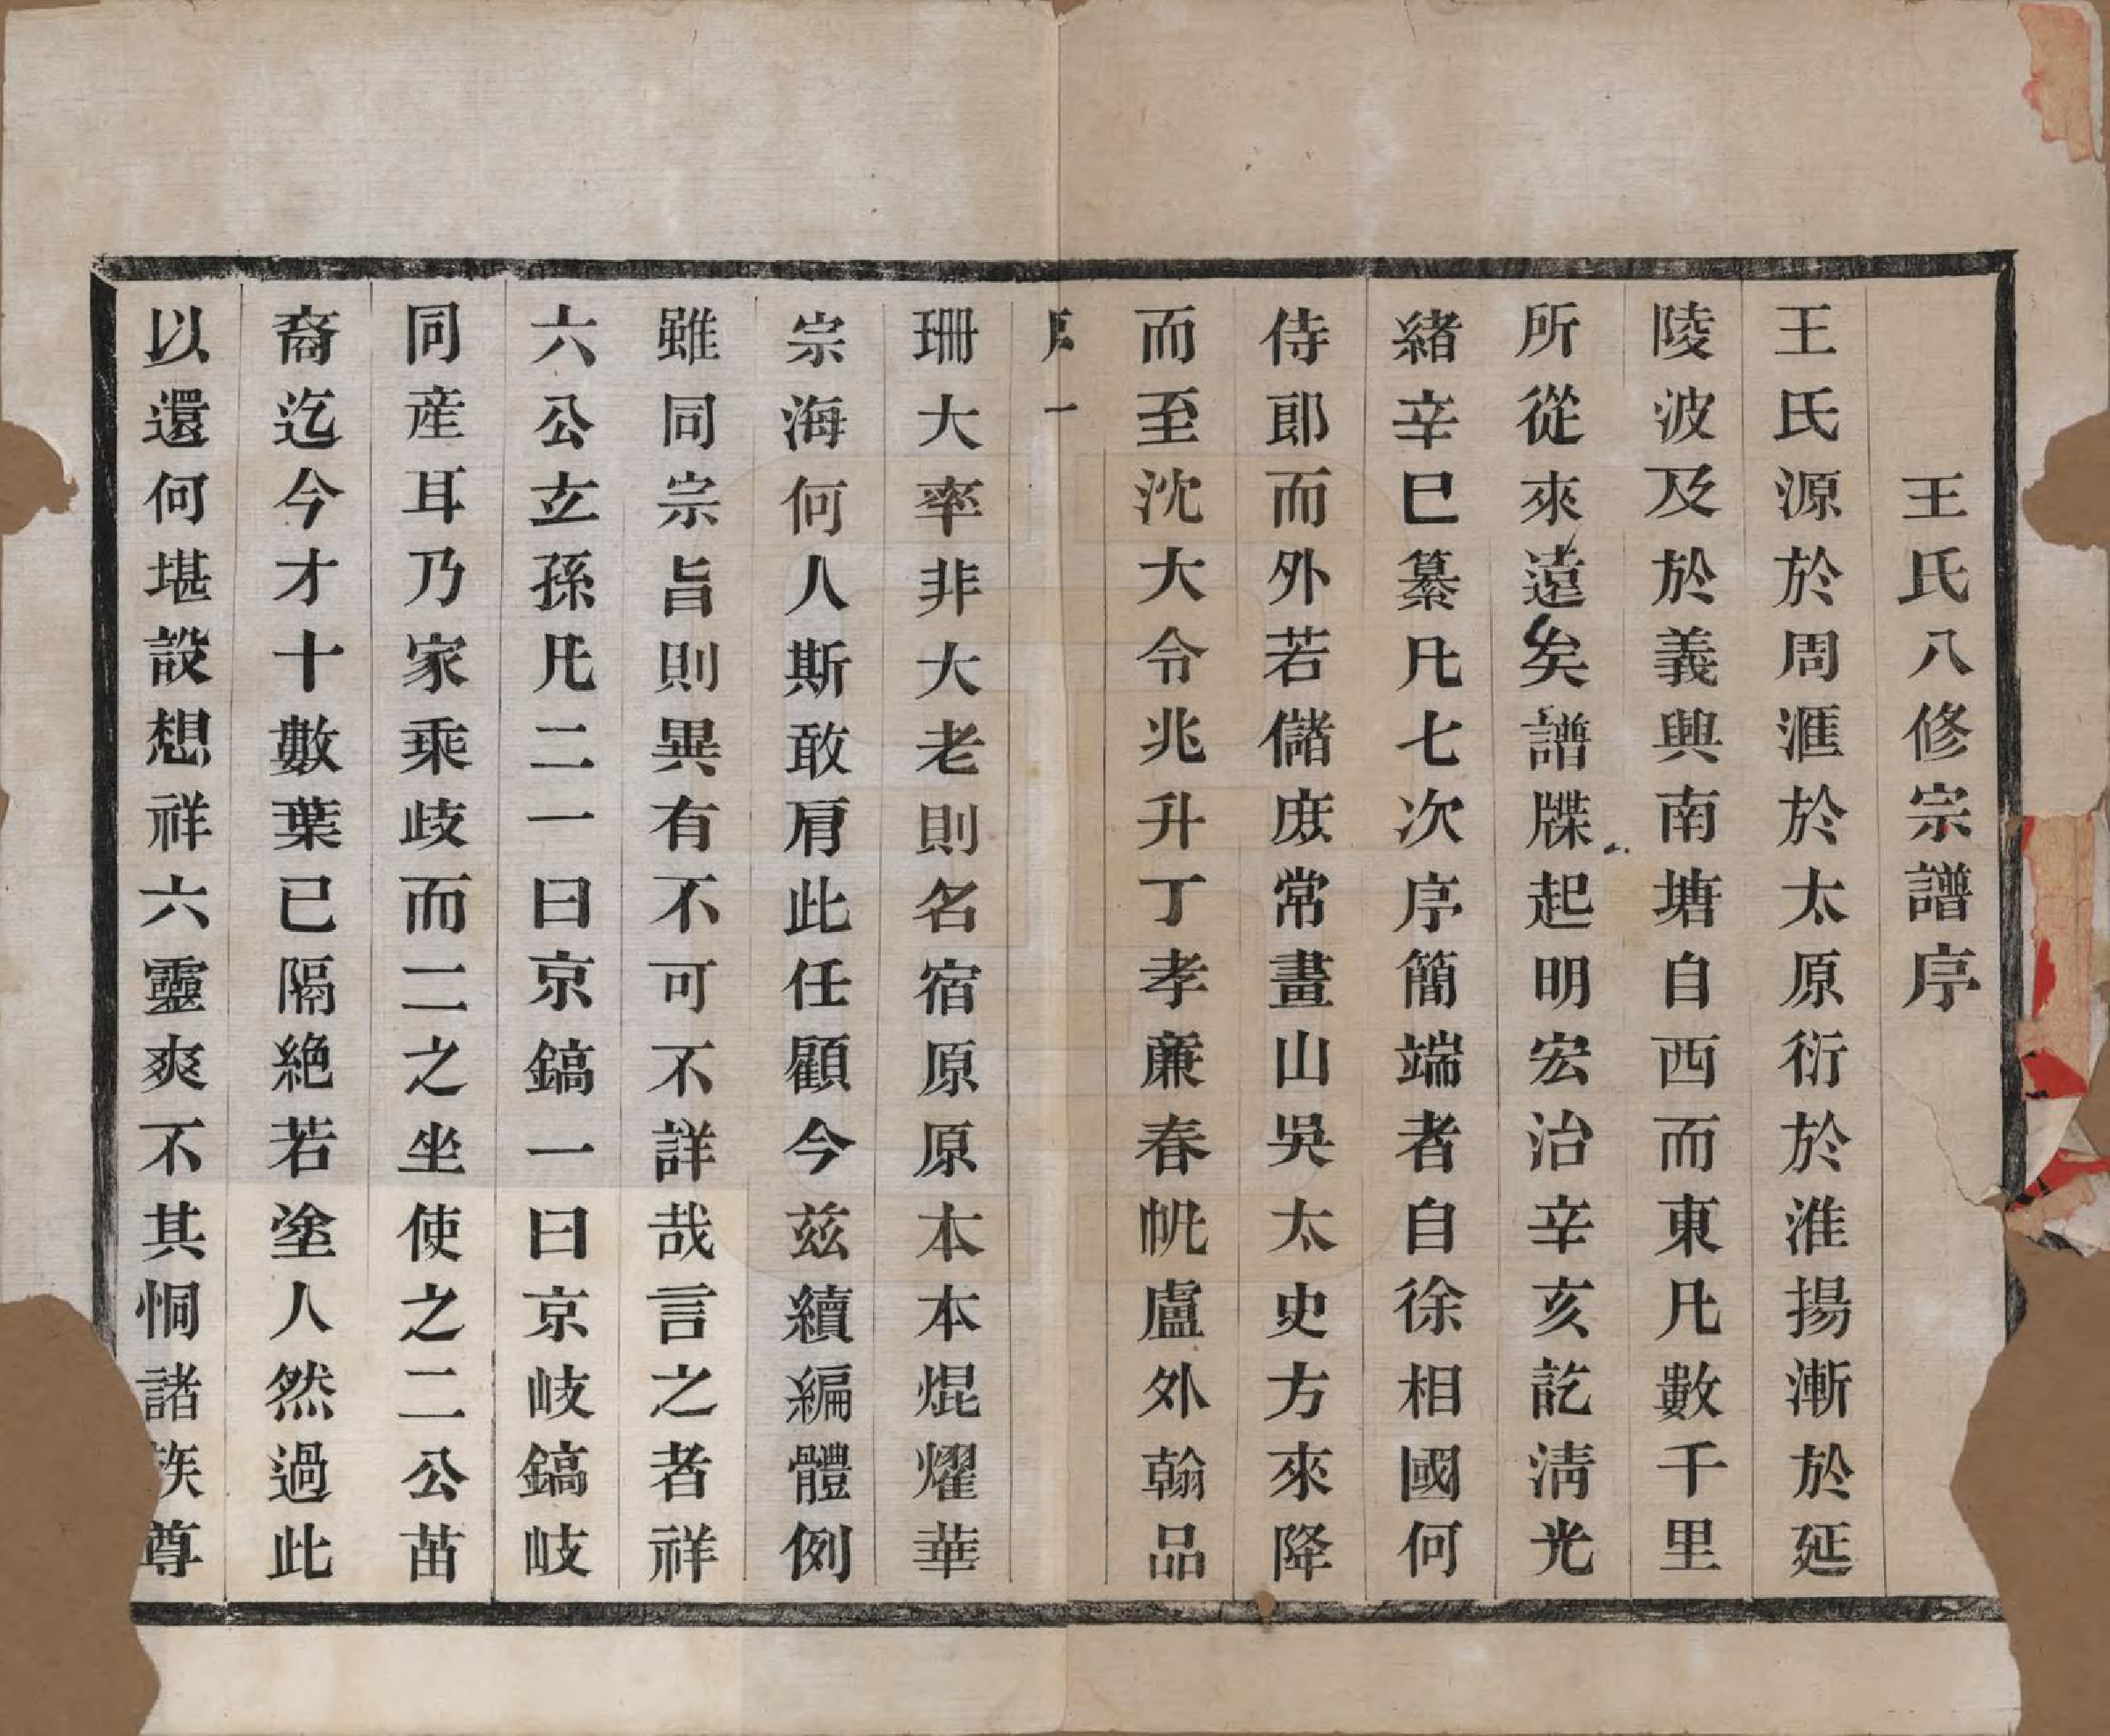 王氏八修宗譜序
王氏源於周滙於太原衍於淮揚漸於延
陵波及於義興南塘自西而東凡數千里
所從來遠矣譜牒起明宏治辛亥訖清光
緒辛巳纂凡七次序簡端者自徐相國何
侍郎而外若儲庶常畫山吳太史方來降
而至沈大令兆升丁孝廉春帆盧外翰品
序 一
珊大率非大老則名宿原原本本焜燿華
宗海何人斯敢肩此任顧今兹續編體例
雖同宗旨則異有不可不詳哉言之者祥
六公玄孫凡二一曰京鎬一曰京岐鎬岐
同産耳乃家乘歧而二之坐使之二公苗
裔迄今才十數葉已隔絶若塗人然過此
以還何堪設想祥六靈爽不其恫諸族尊